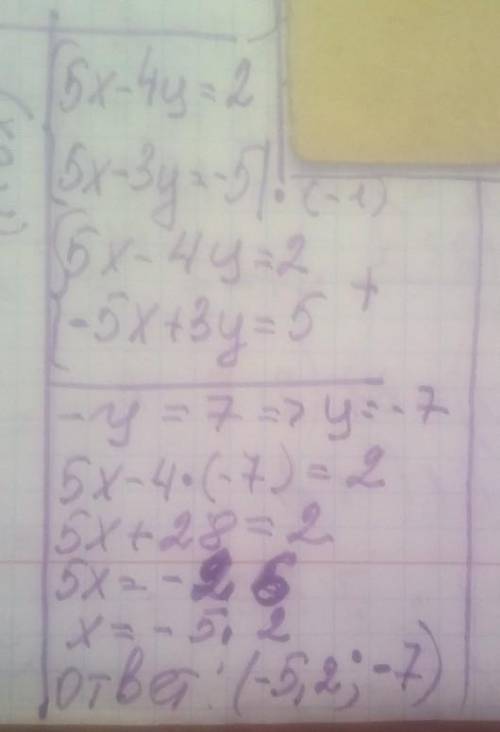 5x-4y=2
5x-3y=-5|·(-1)
5x-4y=2
-5x+3y=5 +
-y=7=>y=-7
5x-4·(-7)=2
5x+28=2
5x=-26
x=-5,2
ответ: (-5,2;-7)